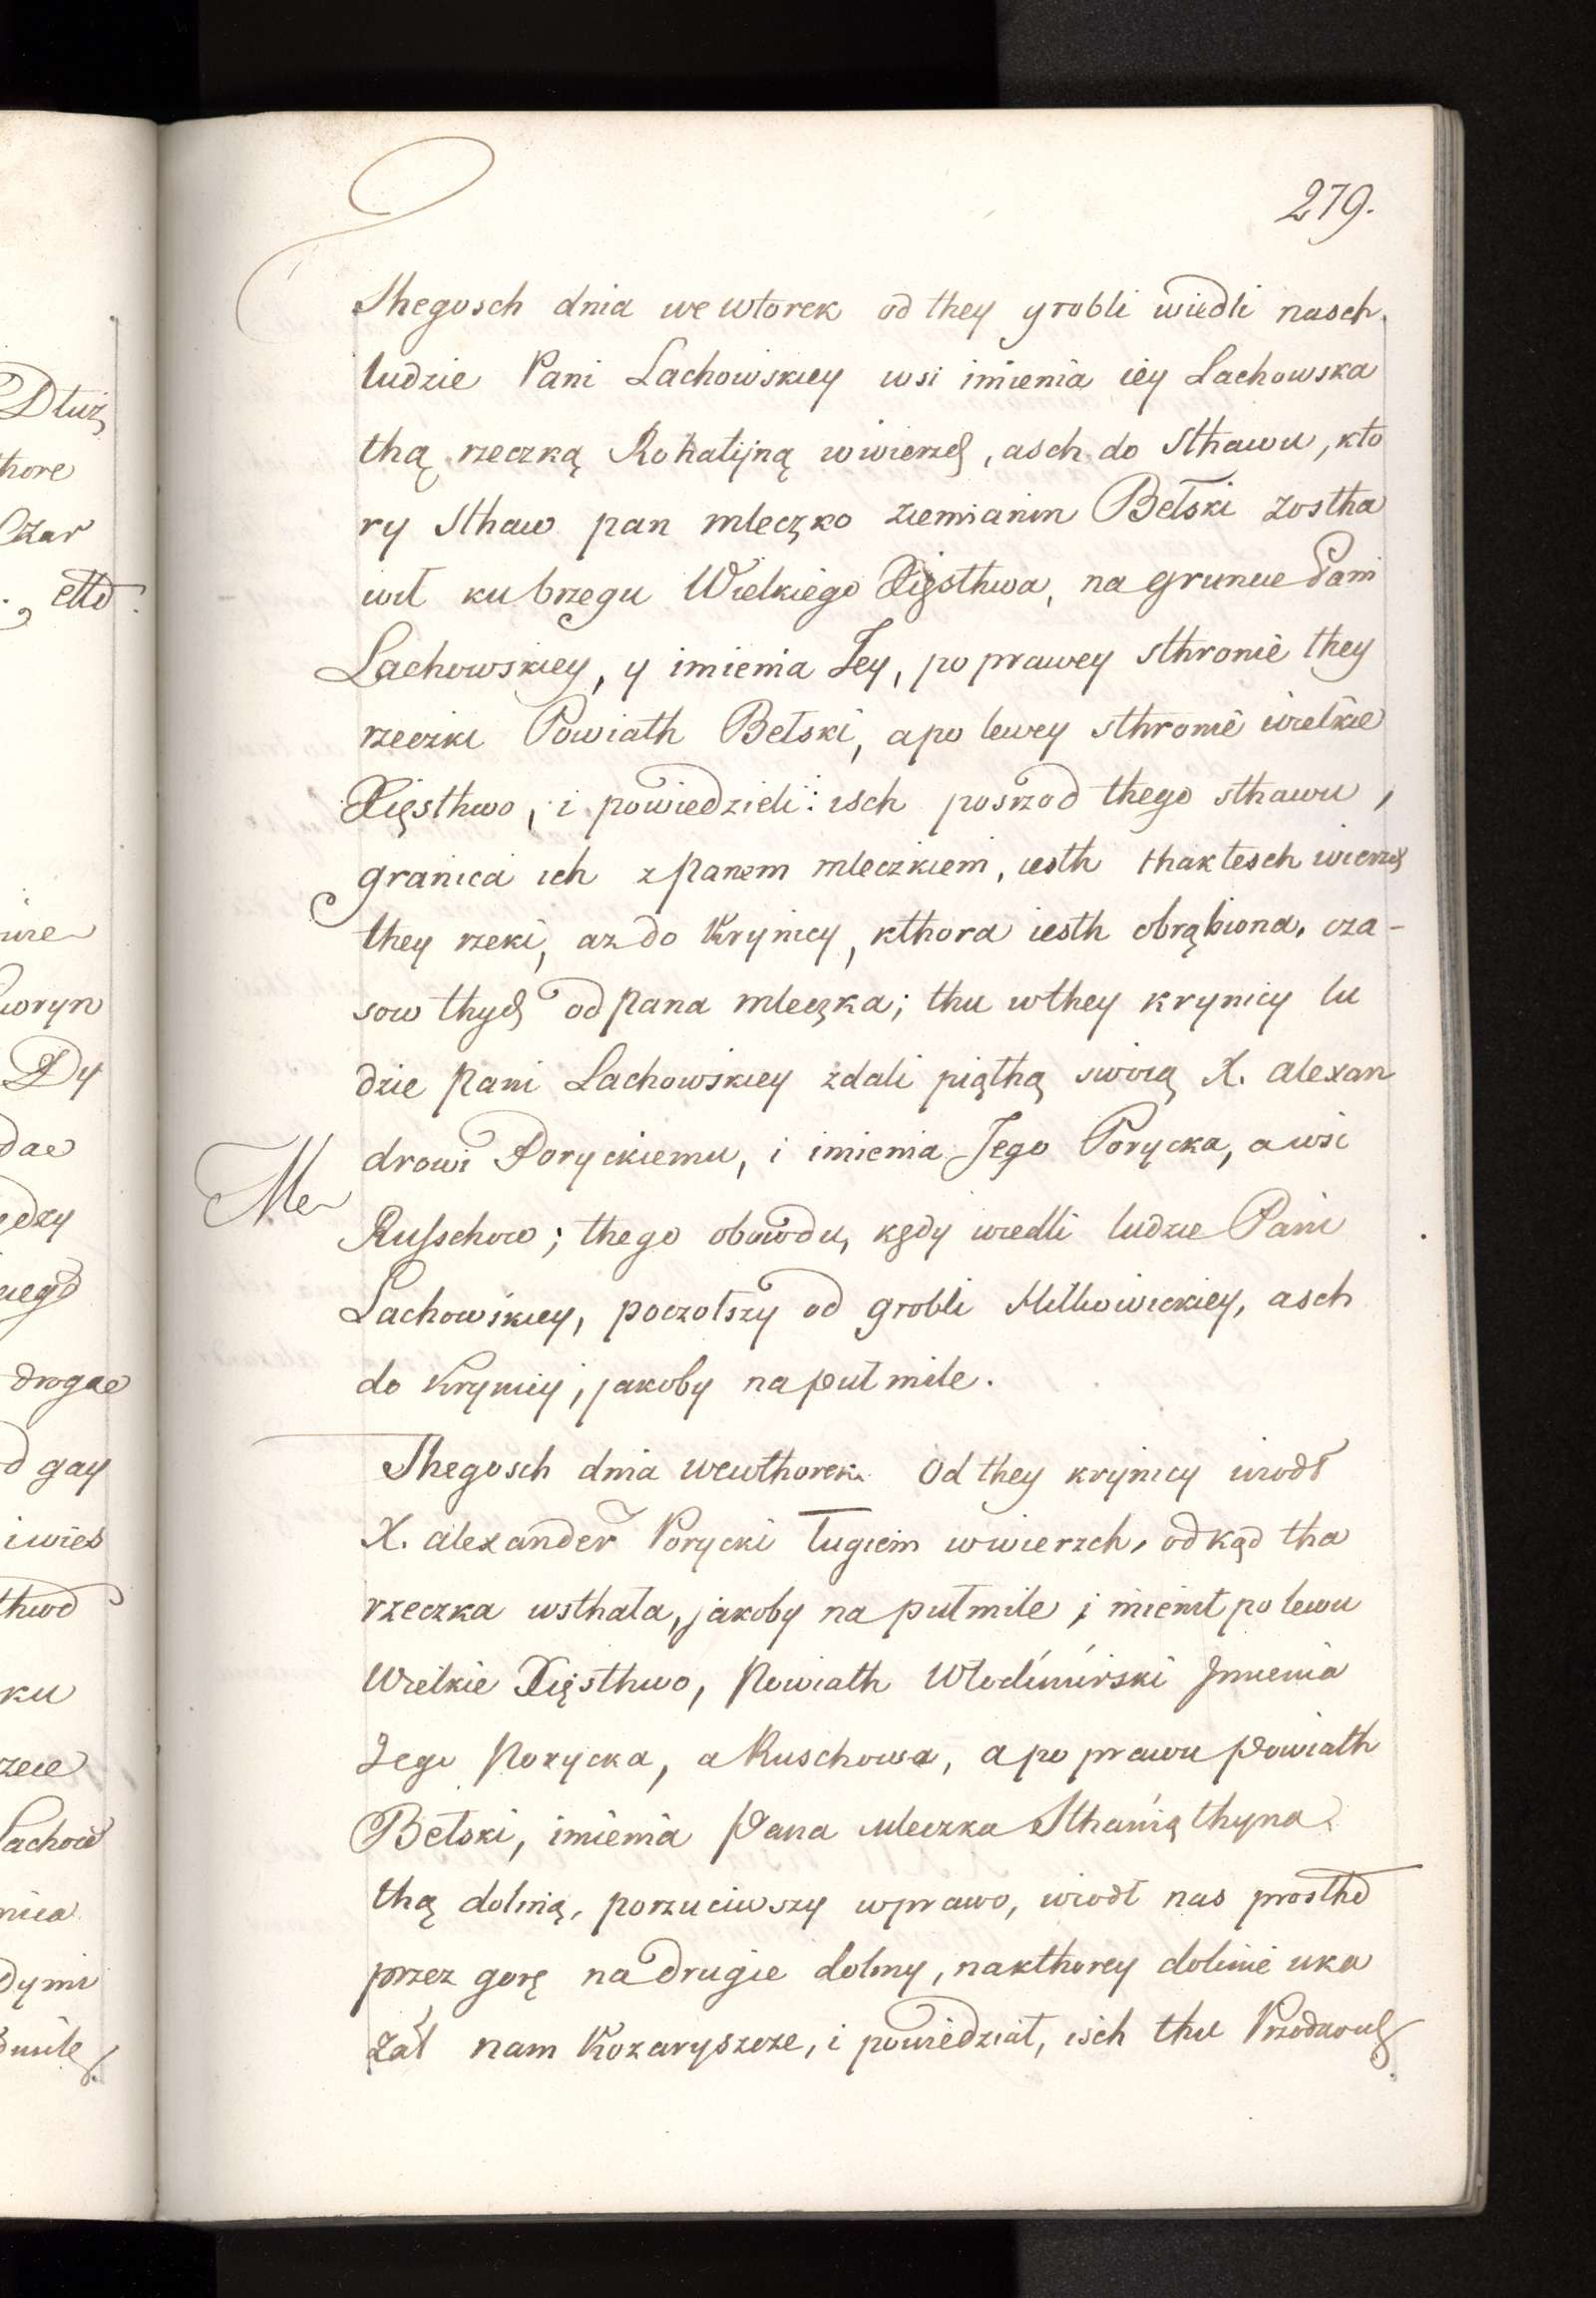 279.
Thegosch dnia we wtorek od they grobli wiedli nasch
ludzie Pani Lachowskiey wsi imienia iey Lachowska
thą rzeczką Rohatijną wwierzch, asch do Sthawu, kto
ry Sthaw pan mleczko ziemianin Bełski zostha
wił ku brzegu Wielkiego Xięsthwa, na gruncie Pani
Lachowskiey, y imienia Jey, po prawey sthronie they
rzeczki Powiath Bełski, a po lewey sthronie wielkie
Xięsthwo, i powiedzieli: isch posrzod thego sthawu,
granica ich z Panem mleczkiem, iesth thak tesch wierzch
they rzeki, az do Krynicy, kthora iesth obrąbiona, cza-
sow thych od Pana mleczka; thu w they krynicy lu
dzie Pani Lachowskiey zdali piąthą swoią X. alexan
drowi Poryckiemu, i imienia Jego Porycka, a wsi
Me
Russchow; thego obowodu, kędy wiedli ludzie Pani
Lachowskiey, poczołszy od grobli Milkowickiey, asch
do Krynicy, jakoby na puł mile.
Thegosch dnia wewthorek. Od they krynicy wiodł
X. alexander Porycki ługiem wwierzch, odkąd tha
rzeczka wsthała, jakoby na puł mile, i mienił po lewu
Wielkie Xięsthwo, Powiath Włodimirski Jmienia
Jego Porycka, a Ruschowa, a po prawu Powiath
Bełski, imienia Pana Mleczka Sthaniąthyna
thą doliną, porzuciwszy wprawo, wiodł nas prostho
przez gorę na drugie doliny, na kthorey dolinie uka
zał nam Kozaryszcze, i powiedział, isch thu Przodkowie
Dłuż
thore
Czar
etto
nie
woryn
Dy
dae
ędzy
iego
drogae
d gay
i wies
thwo
ku
rzeie
Lachow
nica
dymi
mile